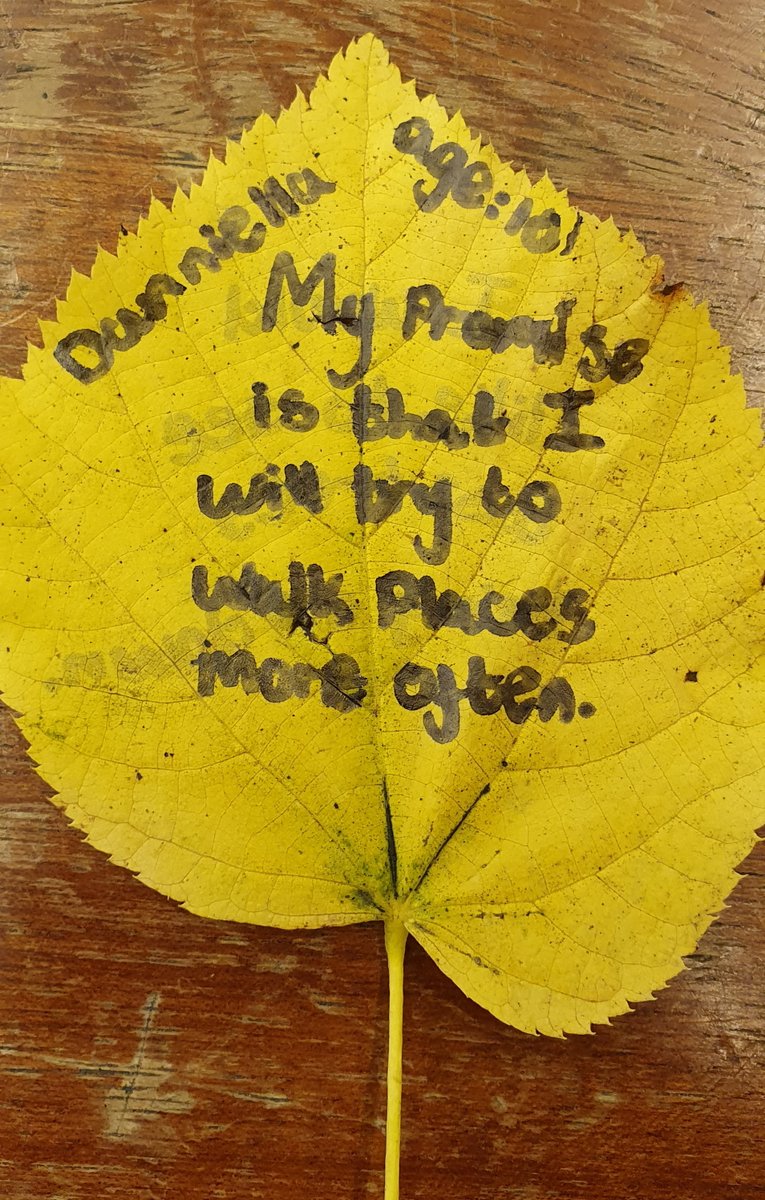 Danniella age:10!
My promise
is that I
will try to
walk places
more often.